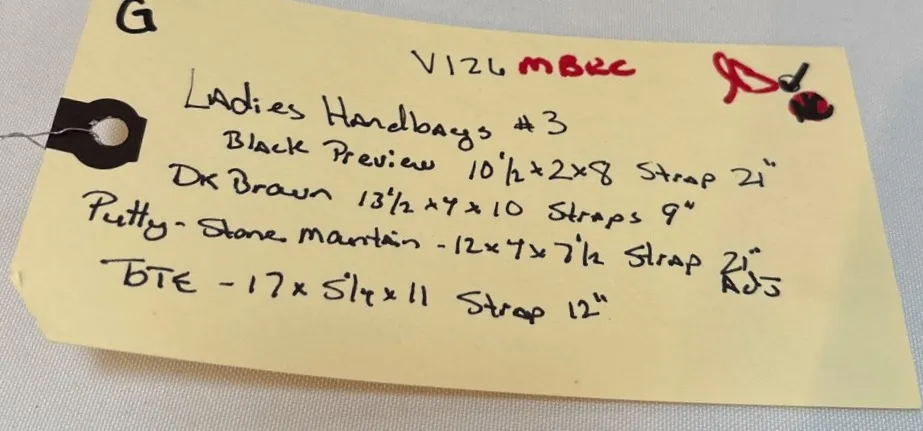 G
V126 MBRC
Ladies Handbags #3
Black Preview 10 1/2 x 2 x 8 Strap 21"
Dk Brown 13 1/2 x 4 x 10 Straps 9"
Putty - Stone Mantain - 12 x 4 x 7 1/2 Strap 21"
ADJ
TOTE - 17 x 5 1/4 x 11 Strap 12"